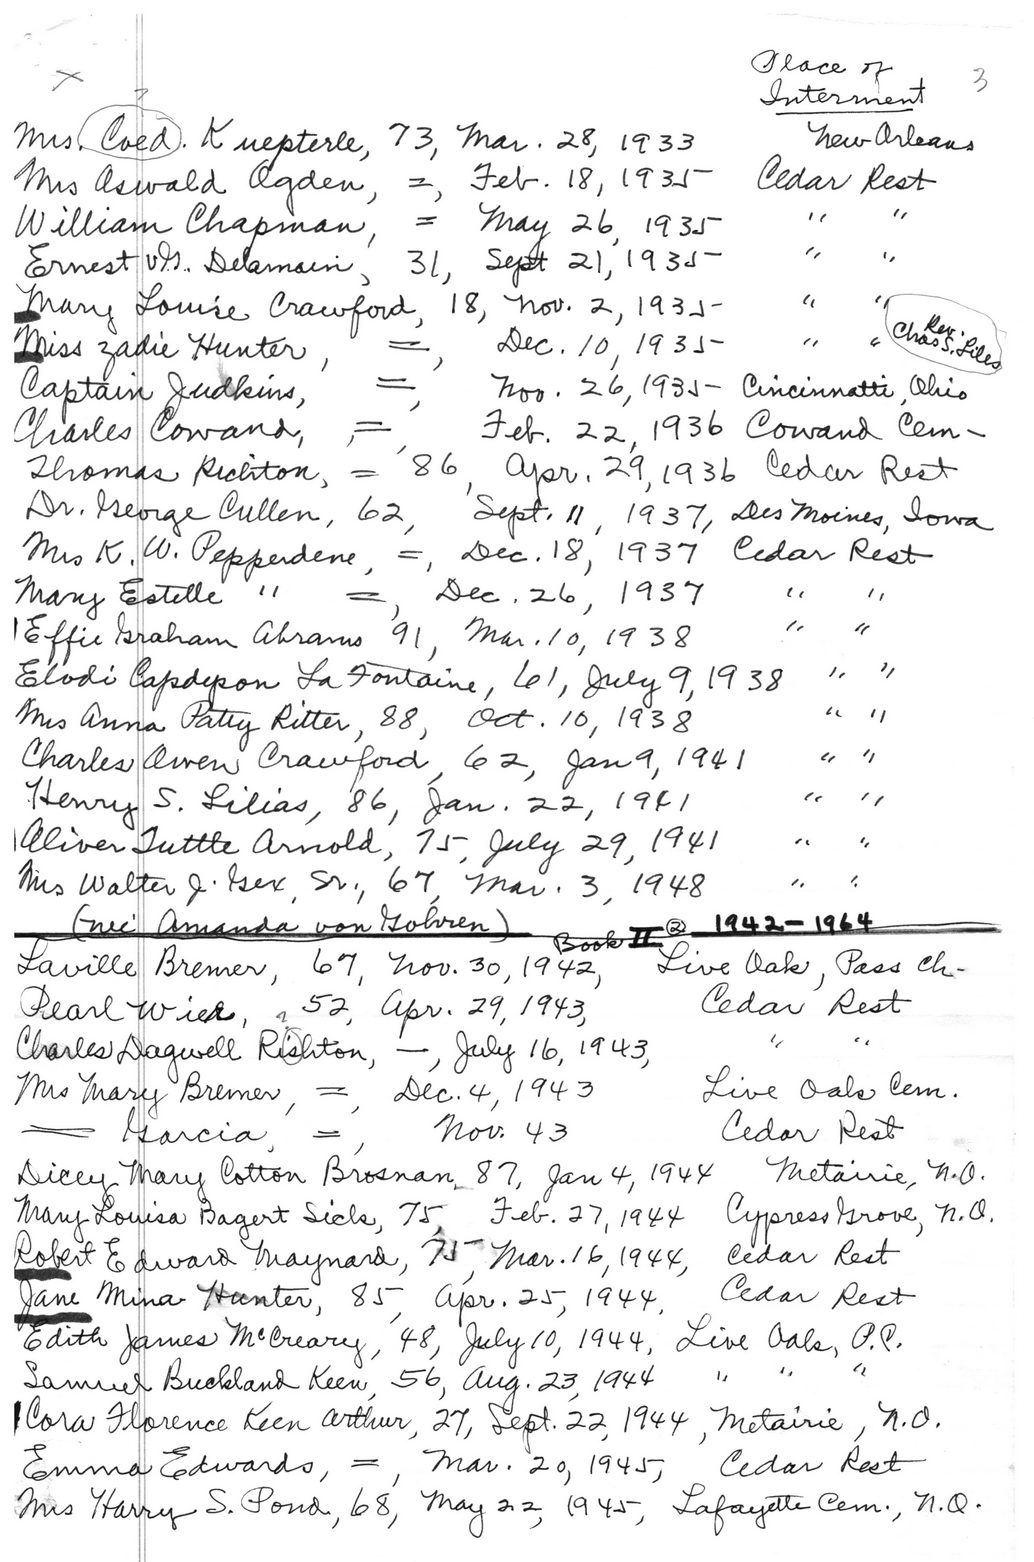 Place of 3
Interment
Mrs. Coed. Kuepterle, 73, Mar. 28, 1933 New Orleans
Mrs Oswald Ogden, =, Feb. 18, 1935 Cedar Rest
William Chapman, = May 26, 1935 " "
Ernest v.G. Delamain, 31, Sept 21, 1935 " "
Mary Louise Crawford, 18, Nov. 2, 1935 " "
Miss Zadie Hunter, =, Dec. 10, 1935 " " Rev. Chas S. Liles
Captain Judkins, =, Nov. 26, 1935 Cincinnatti, Ohio
Charles Cowand, =, Feb. 22, 1936 Cowand Cem-
Thomas Richton, = 86, Apr. 29, 1936 Cedar Rest
Dr. George Cullen, 62, Sept. 11, 1937, Des Moines, Iowa
Mrs K. W. Pepperdene, =, Dec. 18, 1937 Cedar Rest
Mary Estelle " =, Dec. 26, 1937 " "
Effie Graham Abrams 91, Mar. 10, 1938 " "
Elodi Capdepon La Fontaine, 61, July 9, 1938 " "
Mrs Anna Patty Ritter, 88, Oct. 10, 1938 " "
Charles Owen Crawford, 62, Jan 9, 1941 " "
Henry S. Lilias, 86, Jan. 22, 1941 " "
Oliver Tuttle Arnold, 75, July 29, 1941 " "
Mrs Walter J. Gex, Sr., 67, Mar. 3, 1948 " "
(neé Amanda von Gohren) Book II ② 1942-1964
Laville Bremer, 67, Nov. 30, 1942, Live Oak, Pass Ch-
Pearl 52, Apr. 29, 1943, Cedar Rest
Charles Dagwell Rishton, —, July 16, 1943, " "
Mrs Mary Bremer, =, Dec. 4, 1943 Live Oak Cem.
— Garcia, =, Nov. 43 Cedar Rest
Dicey Mary Cotton Brosnan, 87, Jan 4, 1944 Metairie, N.O.
Mary Louisa Bagert Sick, 75, Feb. 27, 1944 Cypress Grove, N.O.
Robert Edward Maynard, 75, Mar. 16, 1944, Cedar Rest
Jane Mina Hunter, 85, Apr. 25, 1944, Cedar Rest
Edith James McCreary, 48, July 10, 1944, Live Oak, P.C.
Samuel Buckland Keen, 56, Aug. 23, 1944 " " "
Cora Florence Keen Arthur, 27, Sept. 22, 1944, Metairie, N.O.
Emma Edwards, =, Mar. 20, 1945, Cedar Rest
Mrs Harry S. Pond, 68, May 22, 1945, Lafayette Cem., N.O.